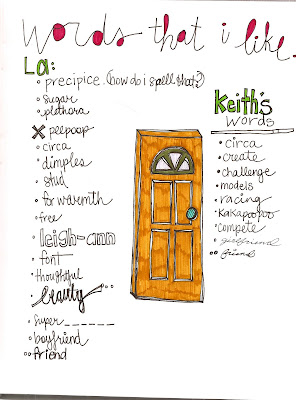 words that i like.
La:
precipice. (how do i spell that?)
sugar
plethora
peepoop
circa
dimples
stud
forwarmth
free
leigh-ann
font
thoughtful
beauty
super_____
boyfriend
friend
Keith's
words
circa
create
challenge
models
racing
KaKapoopoo
compete
girlfriend
friend